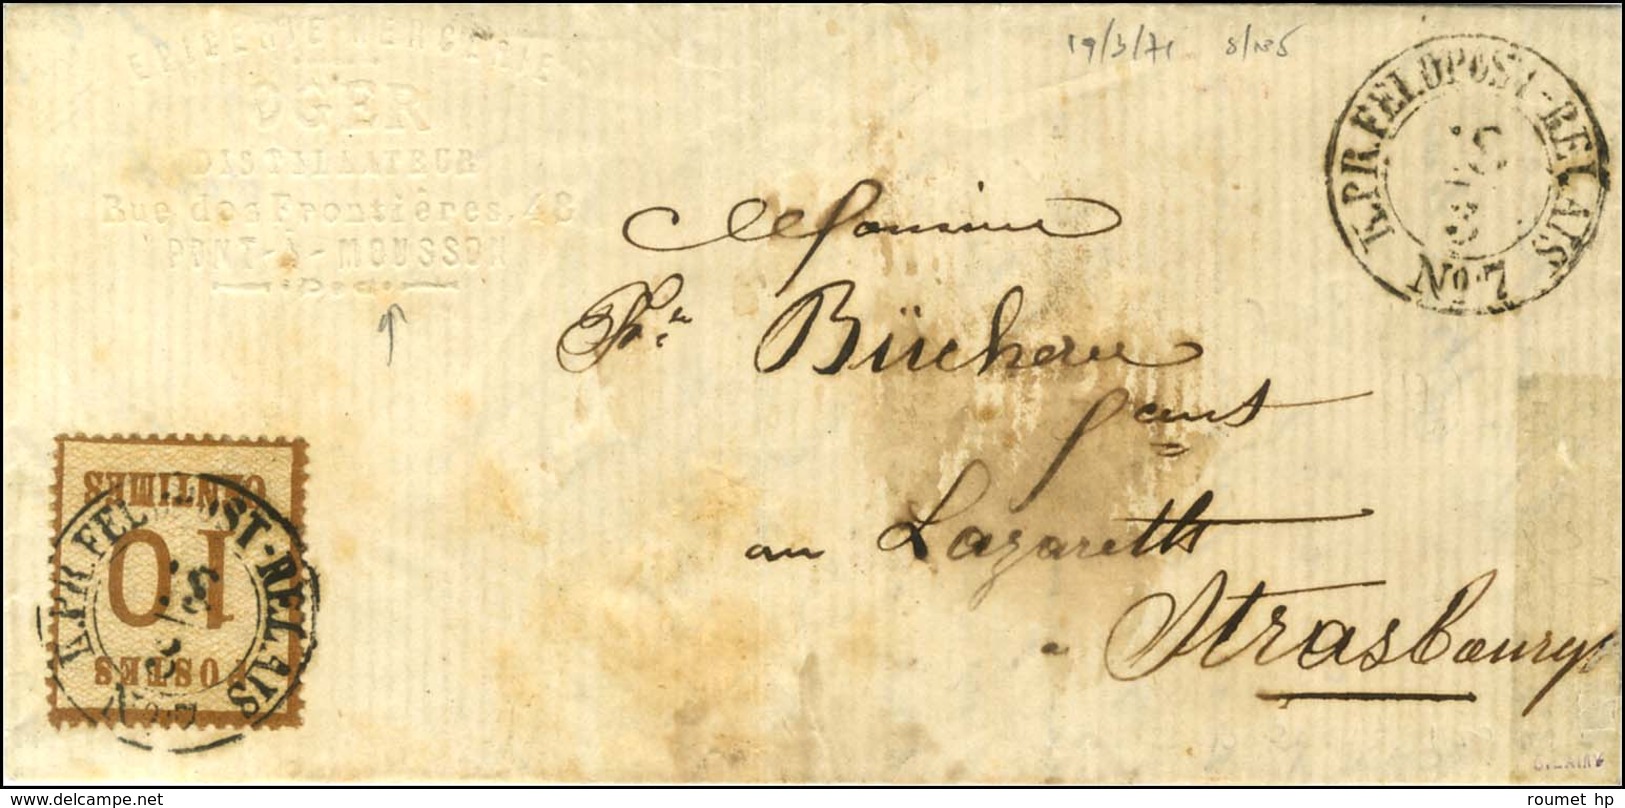 EPICERIE MERCERIE
OGER
DISTILLATEUR
Rue des Frontières, 48
PONT-A-MOUSSON
19/3/71 8/N°5
K.PR.FELDPOST-RELAIS
No 7
Monsieur
Büchau
au Lazareth
à Strasbourg
POSTES
10
CENTIMES
K.PR.FELDPOST-RELAIS
No 7
www.roumet hp